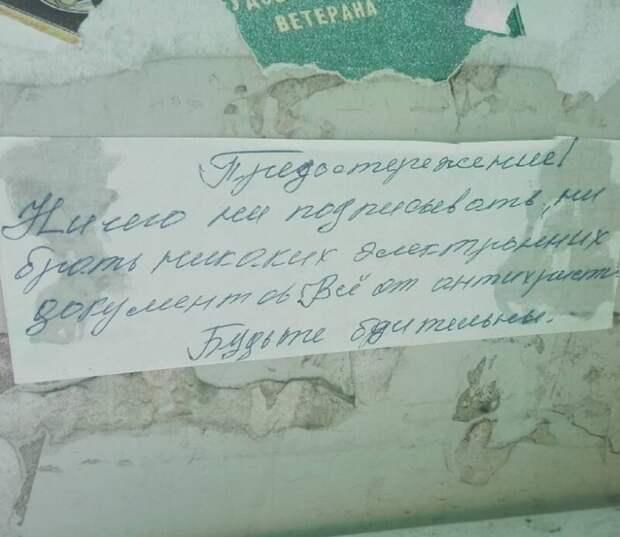 УДОС
ВЕТЕРАНА
Предостережение!
Ничего ни подписывать, ни
брать никаких электронних
документов. Всё от антихрист
Будьте бдительны.